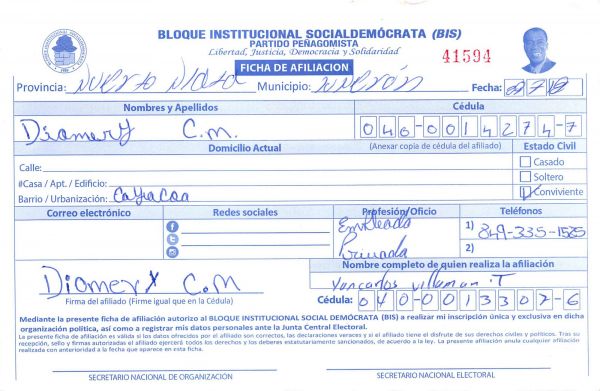 BLOQUE INSTITUCIONAL SOCIALDEMÓCRATA (BIS)
PARTIDO PEÑAGOMISTA
Libertad, Justicia, Democracia y Solidaridad
41594
FICHA DE AFILIACION
Provincia: Municipio: Fecha:
Nombres y Apellidos Cédula
Diomery C.M. 046-0014274-7
Domicilio Actual (Anexar copia de cédula del afiliado) Estado Civil
Calle: Casado
#Casa / Apt. / Edificio: Soltero
Barrio / Urbanización: Conviviente
Correo electrónico Redes sociales Profesión/Oficio Teléfonos
Empleada 1) 849-335-1585
Privada 2)
Nombre completo de quien realiza la afiliación
Diomery C.M Yancarlos Villaman T
Firma del afiliado (Firme igual que en la Cédula) Cédula: 040-0013307-6
Mediante la presente ficha de afiliación autorizo al BLOQUE INSTITUCIONAL SOCIAL DEMÓCRATA (BIS) a realizar mi inscripción única y exclusiva en dicha
organización política, así como a registrar mis datos personales ante la Junta Central Electoral.
La presente ficha de afiliación es válida si los datos ofrecidos por el afiliado son correctos, las declaraciones veraces y si el afiliado tiene el disfrute de sus derechos civiles y políticos. Tras su
recepción, sello y firmas autorizadas el afiliado ejercerá todos los derechos y los deberes estatutariamente sancionados, de acuerdo a la ley. La presente afiliación anula cualquier afiliación
realizada con anterioridad a la fecha que aparece en esta ficha.
SECRETARIO NACIONAL DE ORGANIZACIÓN SECRETARIO NACIONAL ELECTORAL